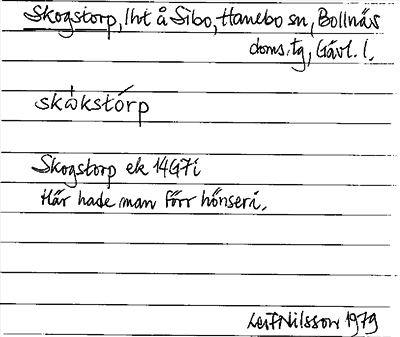 Skogstorp, lht å Sibo, Hanebo sn, Bollnäs
doms.tg, Gävl. l.
skωkstórp
Skogstorp ek 14G7i
Här hade man förr hönseri.
Leif Nilsson 1979